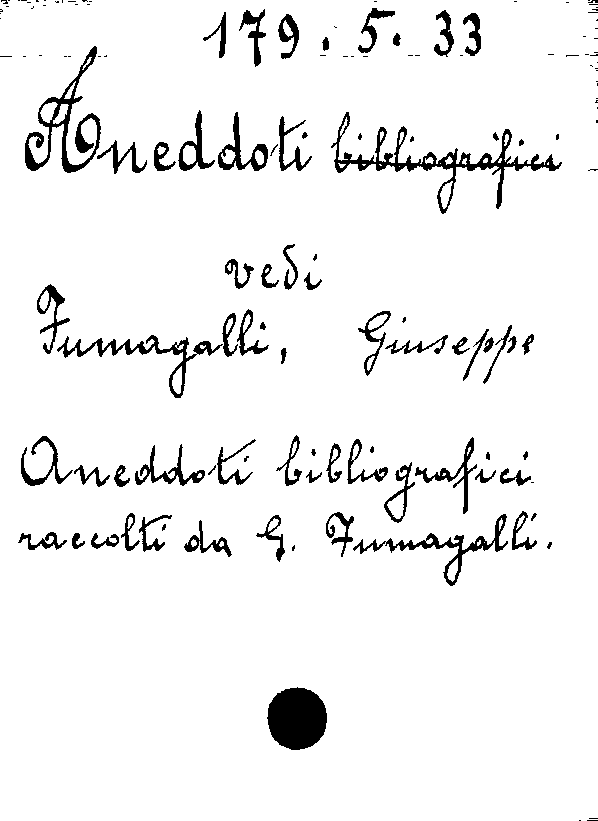 179.5.33
Aneddoti bibliografici
vedi
Fumagalli, Giuseppe
Aneddoti bibliografici
raccolti da G. Fumagalli.